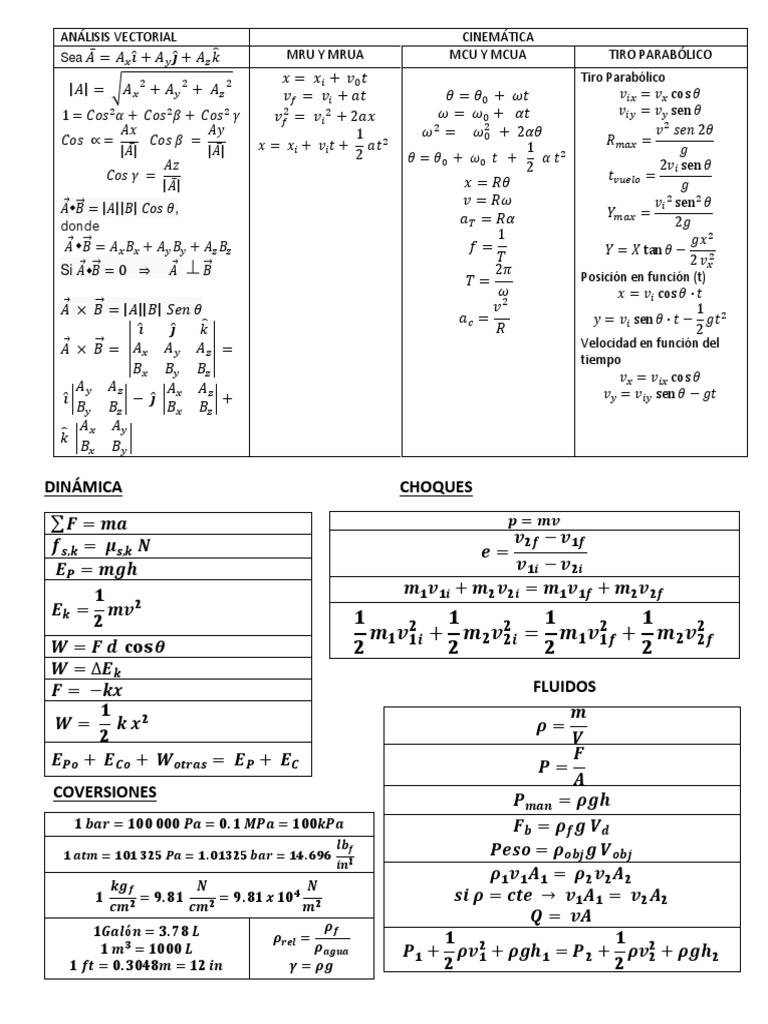 ANÁLISIS VECTORIAL
Sea Ā = Aₓî + A_yĵ + A_zk̂
|A| = √(Aₓ² + A_y² + A_z²)
1 = Cos²α + Cos²β + Cos²γ
Cos ∝= Ax/|Ā| Cos β = Ay/|Ā|
Cos γ = Az/|Ā|
A⃗•B⃗ = |A||B| Cos θ,
donde
A⃗•B⃗ = AₓBₓ + A_yB_y + A_zB_z
Si A⃗•B⃗ = 0 ⇒ A⃗ ⊥ B⃗
A⃗ × B⃗ = |A||B| Sen θ
A⃗ × B⃗ = | î ĵ k̂ |
| Aₓ A_y A_z | =
| Bₓ B_y B_z |
î |A_y A_z; B_y B_z| − ĵ |Aₓ A_z; Bₓ B_z| +
k̂ |Aₓ A_y; Bₓ B_y|
CINEMÁTICA
MRU Y MRUA
x = xᵢ + v₀t
v_f = vᵢ + at
v_f² = vᵢ² + 2ax
x = xᵢ + vᵢt + 1/2 at²
MCU Y MCUA
θ = θ₀ + ωt
ω = ω₀ + αt
ω² = ω₀² + 2αθ
θ = θ₀ + ω₀ t + 1/2 α t²
x = Rθ
v = Rω
a_T = Rα
f = 1/T
T = 2π/ω
a_c = v²/R
TIRO PARABÓLICO
Tiro Parabólico
vᵢₓ = vₓ cos θ
v_iy = v_y sen θ
R_max = v² sen 2θ/g
t_vuelo = 2vᵢ sen θ/g
Y_max = vᵢ² sen² θ/2g
Y = X tan θ − gx²/2 vₓ²
Posición en función (t)
x = vᵢ cos θ · t
y = vᵢ sen θ · t − 1/2 gt²
Velocidad en función del
tiempo
vₓ = vᵢₓ cos θ
v_y = v_iy sen θ − gt
DINÁMICA
∑F = ma
f_s,k = μ_s,k N
E_P = mgh
E_k = 1/2 mv²
W = F d cosθ
W = ΔE_k
F = −kx
W = 1/2 k x²
E_Po + E_Co + W_otras = E_P + E_C
CHOQUES
p = mv
e = v_2f − v_1f/v_1i − v_2i
m₁v_1i + m₂v_2i = m₁v_1f + m₂v_2f
1/2 m₁v_1i² + 1/2 m₂v_2i² = 1/2 m₁v_1f² + 1/2 m₂v_2f²
FLUIDOS
ρ = m/V
P = F/A
P_man = ρgh
F_b = ρ_f g V_d
Peso = ρ_obj g V_obj
ρ₁v₁A₁ = ρ₂v₂A₂
si ρ = cte → v₁A₁ = v₂A₂
Q = vA
P₁ + 1/2 ρv₁² + ρgh₁ = P₂ + 1/2 ρv₂² + ρgh₂
COVERSIONES
1 bar = 100 000 Pa = 0.1 MPa = 100kPa
1 atm = 101 325 Pa = 1.01325 bar = 14.696 lb_f/in²
1 kg_f/cm² = 9.81 N/cm² = 9.81 x 10⁴ N/m²
1Galón = 3.78 L
1 m³ = 1000 L
1 ft = 0.3048m = 12 in
ρ_rel = ρ_f/ρ_agua
γ = ρg